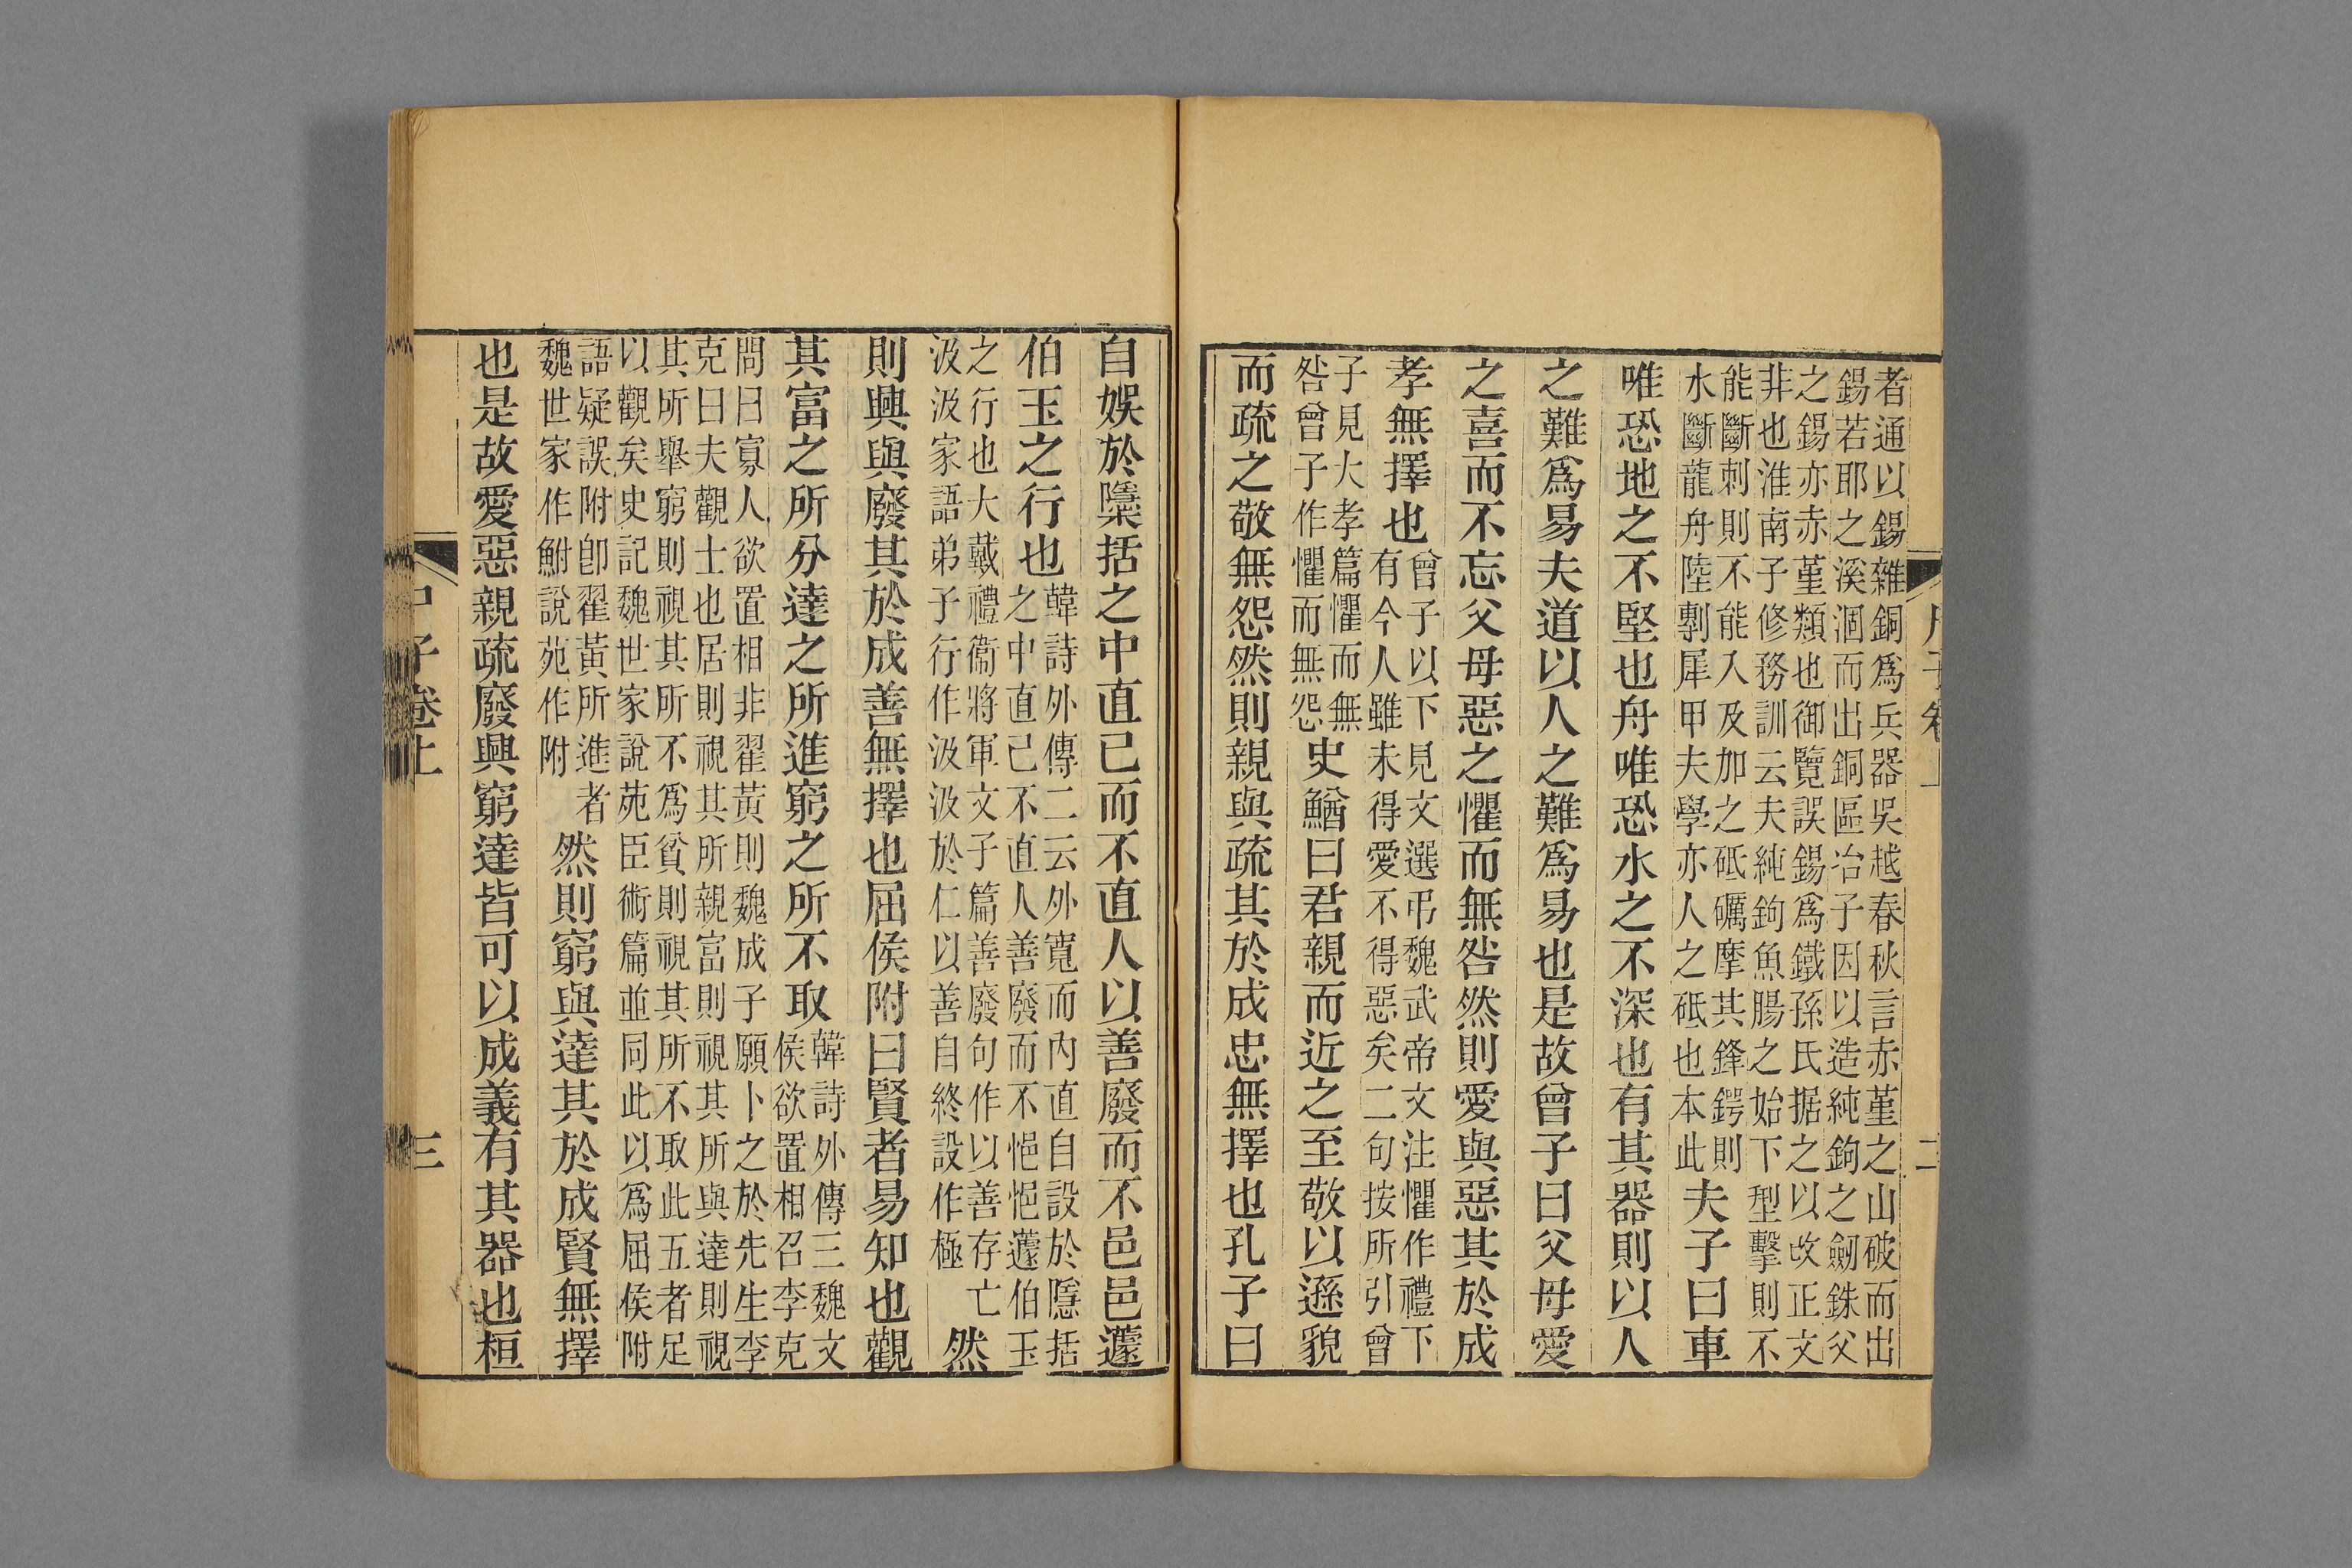 者通以錫雜銅爲兵器吳越春秋言赤堇之山破而出
錫若耶之溪涸而出銅區冶子因以造純鉤之劒銖父
之錫亦赤堇類也御覽誤錫爲鐵孫氏据之以改正文
非也淮南子修務訓云夫純鉤魚腸之始下型擊則不
能斷刺則不能入及加之砥礪摩其鋒鍔則
水斷龍舟陸剸犀甲夫學亦人之砥也本此
夫子曰車
唯恐地之不堅也舟唯恐水之不深也有其器則以人
之難爲易夫道以人之難爲易也是故曾子曰父母愛
之喜而不忘父母惡之懼而無咎然則愛與惡其於成
孝無擇也
曾子以下見文選弔魏武帝文注懼作禮下
有今人雖未得愛不得惡矣二句按所引曾
子見大孝篇懼而無
咎曾子作懼而無怨
史鰌曰君親而近之至敬以遜貌
而疏之敬無怨然則親與疏其於成忠無擇也孔子曰
自娛於檃括之中直己而不直人以善廢而不邑邑蘧
伯玉之行也
韓詩外傳二云外寬而內直自設於隱括
之中直己不直人善廢而不悒悒蘧伯玉
之行也大戴禮衞將軍文子篇善廢句作以善存亡
汲汲家語弟子行作汲汲於仁以善自終設作極
然
則興與廢其於成善無擇也屈侯附曰賢者易知也觀
其富之所分達之所進窮之所不取
韓詩外傳三魏文
侯欲置相召李克
問曰寡人欲置相非翟黃則魏成子願卜之於先生李
克曰夫觀士也居則視其所親富則視其所與達則視
其所舉窮則視其所不爲貧則視其所不取此五者足
以觀矣史記魏世家說苑臣術篇並同此以爲屈侯附
語疑誤附卽翟黃所進者
魏世家作鮒說苑作附
然則窮與達其於成賢無擇
也是故愛惡親疏廢興窮達皆可以成義有其器也桓
子卷上
三